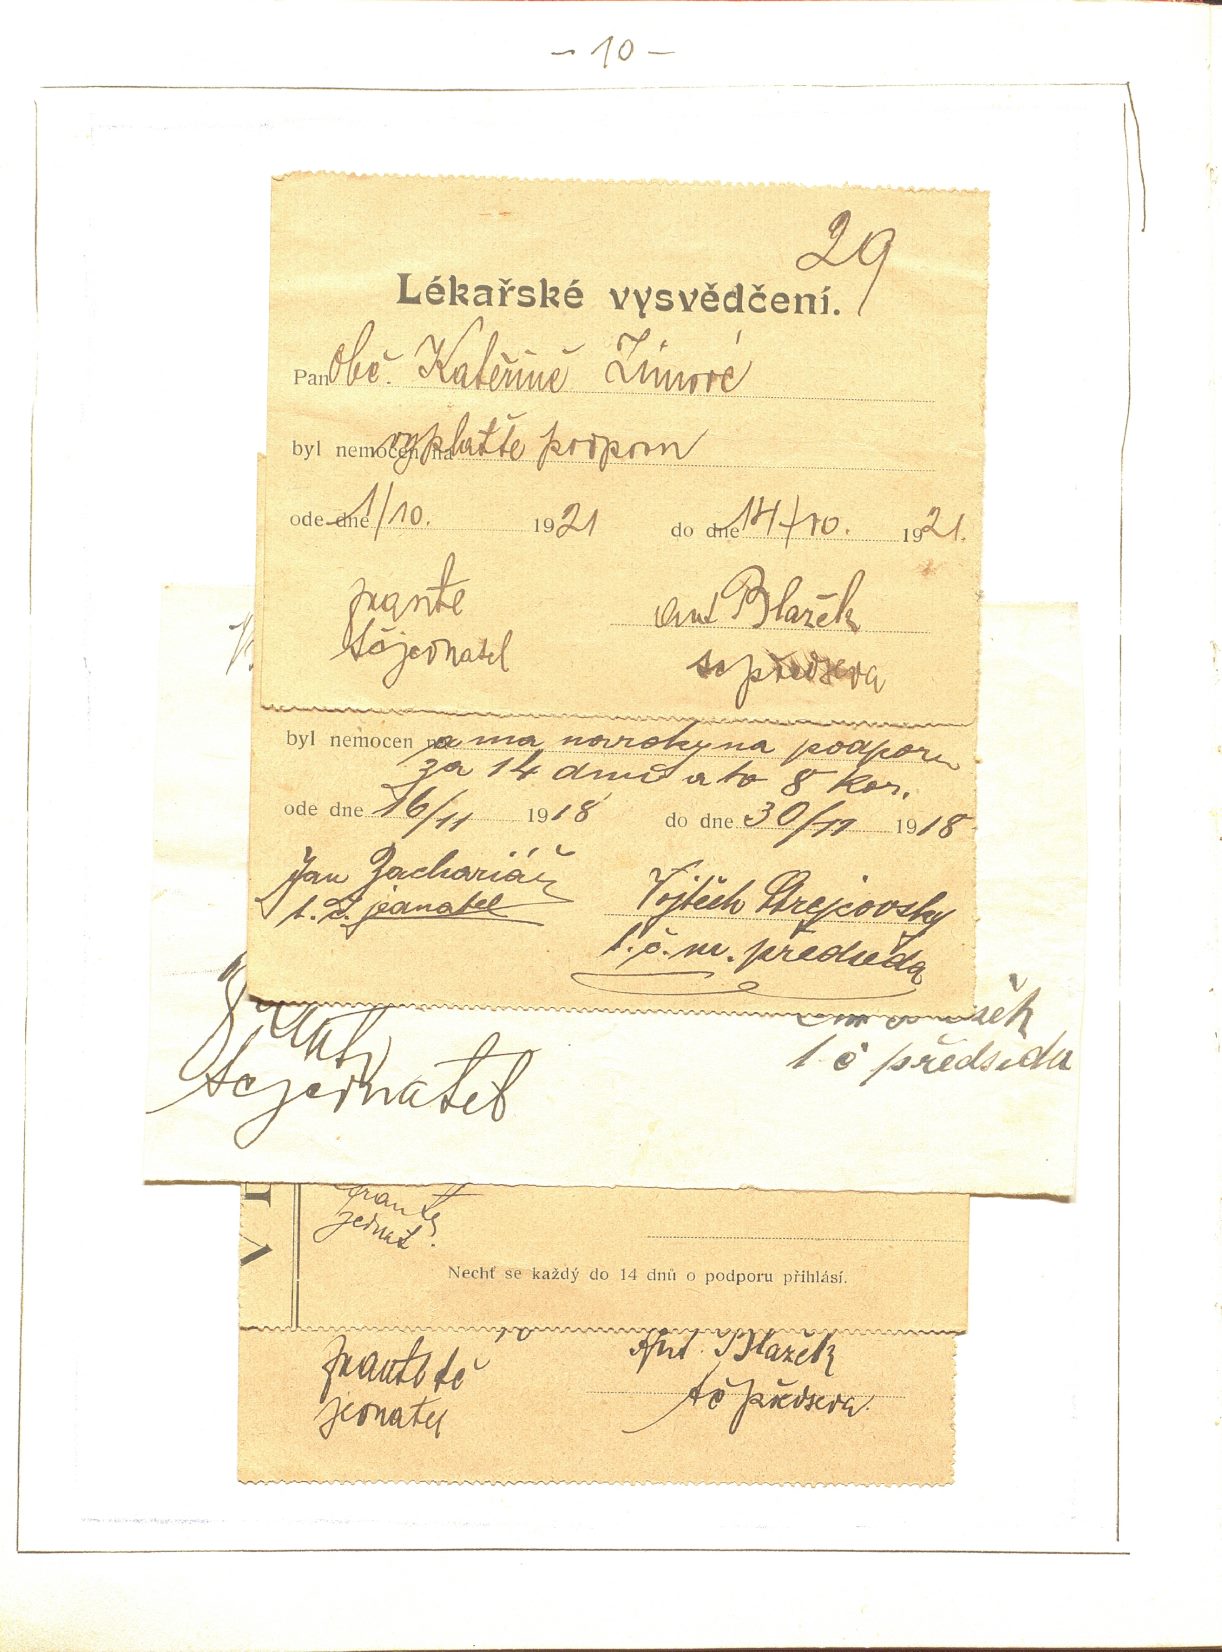 – 10 –
29
Lékařské vysvědčení.
Pan Obč. Kateřině Zimové
byl nemocen na vyplatťe podporu
ode dne 1/10. 1921 do dne 14/10. 1921.
Ant Blažek
tč jednatel tč předseda
byl nemocen na a ma naroky na podporu
za 14 dnu a to 8 kor.
ode dne 16/11 1918 do dne 30/11 1918
Jan Zachariáš Vojtěch Strejcovsky
t. č. jednatel t. č. m. předseda
tč jednatel t č předseda
jednat.
Nechť se každý do 14 dnů o podporu přihlásí.
tč Ant. Blažek
jednatel tč předseda.